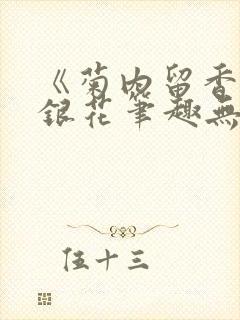 《菊内留香
銀花筆趣無
伍十三